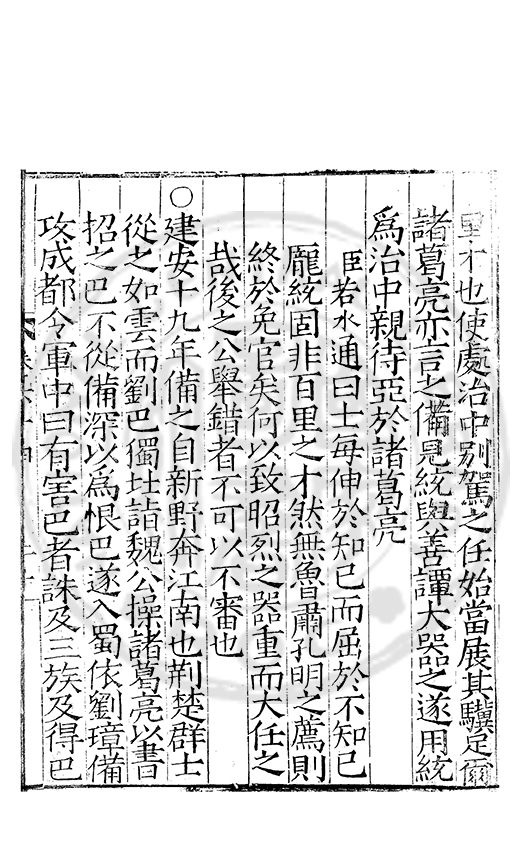 里才也使處治中别駕之任始當展其驥足爾
諸葛亮亦言之備見統與善譚大器之遂用統
爲治中親待亞於諸葛亮
臣若水通曰士每伸於知己而屈於不知己
龐統固非百里之才然無魯肅孔明之薦則
終於免官矣何以致昭烈之器重而大任之
哉後之公舉錯者不可以不審也
○建安十九年備之自新野奔江南也荆楚群士
從之如雲而劉巴獨北詣魏公操諸葛亮以書
招之巴不從備深以爲恨巴遂入蜀依劉璋備
攻成都令軍中曰有害巴者誅及三族及得巴